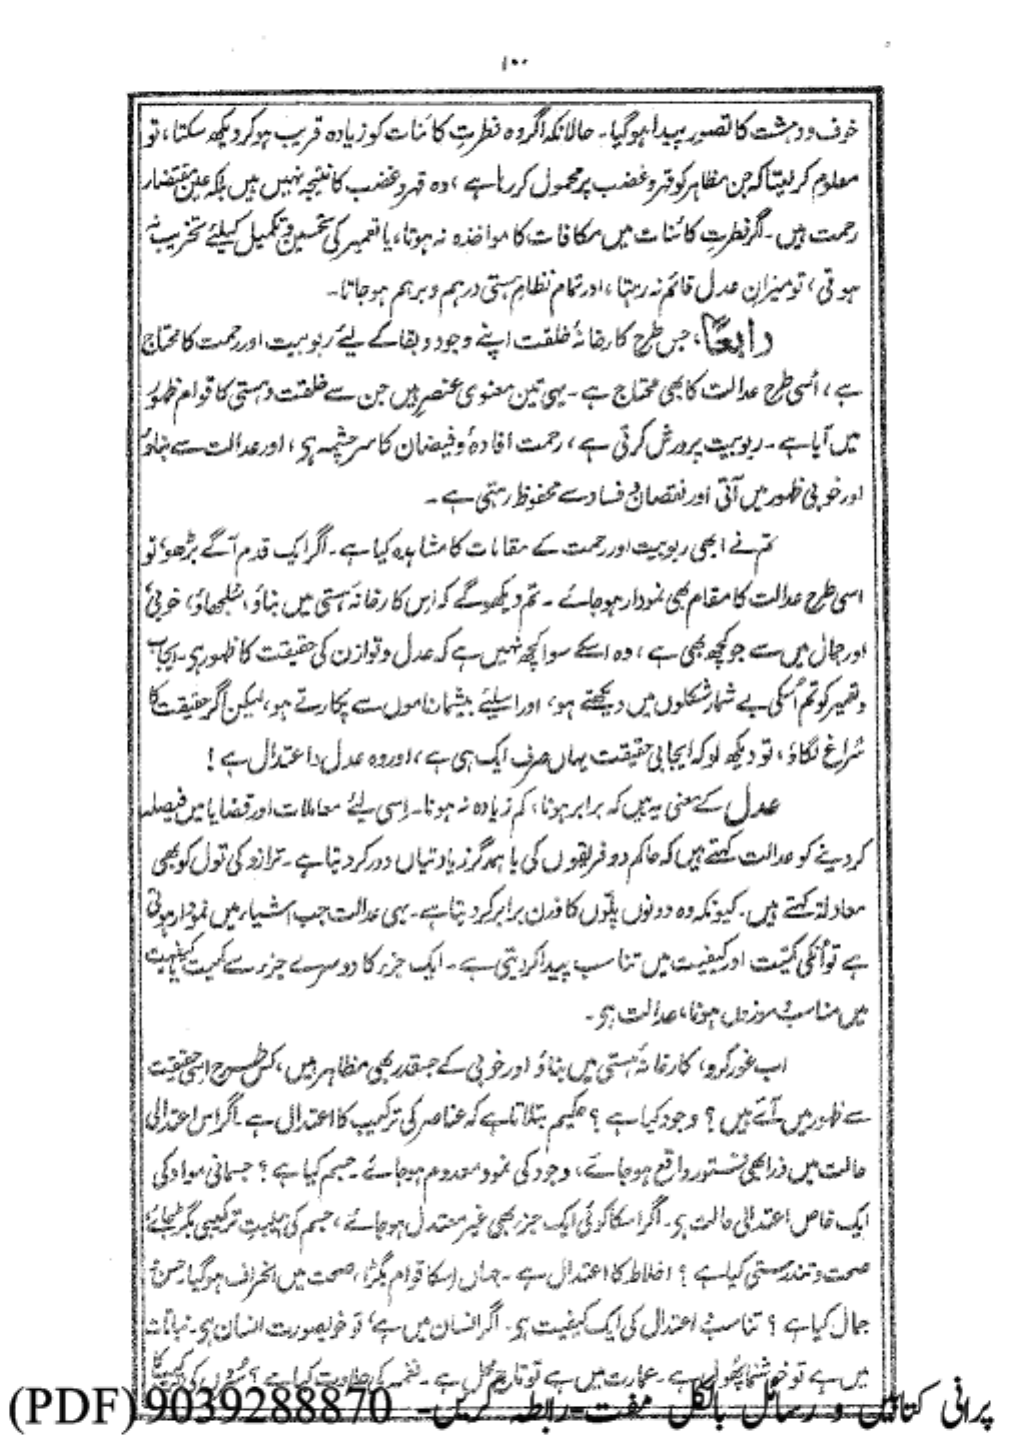 ۱۰۰
خوف و دہشت کا تصور پیدا ہوگیا۔ حالانکہ اگر وہ فطرتِ کائنات کو زیادہ قریب ہوکر دیکھ سکتا، تو
معلوم کرلیتا کہ جن مظاہر کو قہر و غضب پر محمول کر رہا ہے، وہ قہر و غضب کا نتیجہ نہیں ہیں بلکہ عین مقتضاءِ
رحمت ہیں۔ اگر فطرتِ کائنات میں مکافات کا مواخذہ نہ ہوتا، یا تعمیر کی تحسین و تکمیل کیلئے تخریب نہ
ہوتی، تو میزانِ عدل قائم نہ رہتا، اور تمام نظامِ ہستی درہم و برہم ہوجاتا۔
رابعاً، جس طرح کارخانۂ خلقت اپنے وجود و بقا کے لیے ربوبیت اور رحمت کا محتاج
ہے، اُسی طرح عدالت کا بھی محتاج ہے۔ یہی تین معنوی عنصر ہیں جن سے خلقت و ہستی کا قوام ظہور
میں آیا ہے۔ ربوبیت پرورش کرتی ہے، رحمت افادہ و فیضان کا سرچشمہ ہی، اور عدالت سے بناؤ
اور خوبی ظہور میں آتی اور نقصان و فساد سے محفوظ رہتی ہے۔
تم نے ابھی ربوبیت اور رحمت کے مقامات کا مشاہدہ کیا ہے۔ اگر ایک قدم آگے بڑھو، تو
اسی طرح عدالت کا مقام بھی نمودار ہوجائے۔ تم دیکھوگے کہ اس کارخانۂ ہستی میں بناؤ، سلجھاؤ، خوبی
اور جمال میں سے جو کچھ بھی ہے، وہ اسکے سوا کچھ نہیں ہے کہ عدل و توازن کی حقیقت کا ظہور ہی۔ ایجاب
و تعمیر کو تم اُسکی بے شمار شکلوں میں دیکھتے ہو، اور اسلیئے بیشمار ناموں سے پکارتے ہو، لیکن اگر حقیقت کا
سُراغ لگاؤ، تو دیکھ لو کہ ایجابی حقیقت یہاں صرف ایک ہی ہے، اور وہ عدل و اعتدال ہے!
عدل کے معنی یہ ہیں کہ برابر ہونا، کم زیادہ نہ ہونا۔ اِسی لیئے معاملات اور قضایا میں فیصلہ
کردینے کو عدالت کہتے ہیں کہ حاکم دو فریقوں کی باہمدگر زیادتیاں دور کردیتا ہے۔ ترازو کی تول کو بھی
معادلۃ کہتے ہیں۔ کیونکہ وہ دونوں پلّوں کا وزن برابر کردیتا ہے۔ یہی عدالت جب اشیاء میں نمودار ہوتی
ہے تو اُنکی کمیّت اور کیفیت میں تناسب پیدا کردیتی ہے۔ ایک جزء کا دوسرے جزء سے کمیت یا کیفیت
میں مناسب و موزوں ہونا، عدالت ہی۔
اب غور کرو، کارخانۂ ہستی میں بناؤ اور خوبی کے جسقدر بھی مظاہر ہیں، کس طرح اسی حقیقت
سے ظہور میں آئے ہیں؟ وجود کیا ہے؟ حکیم بتلاتا ہے کہ عناصر کی ترکیب کا اعتدال ہے۔ اگر اس اعتدالی
حالت میں ذرا بھی فتور واقع ہوجائے، وجود کی نمود معدوم ہوجائے۔ جسم کیا ہے؟ جسمانی مواد کی
ایک خاص اعتدالی حالت ہی۔ اگر اسکا کوئی ایک جزء بھی غیر معتدل ہوجائے، جسم کی ہیئت ترکیبی بگڑجائے۔
صحت و تندرستی کیا ہے؟ اخلاط کا اعتدال ہے۔ جہاں اسکا قوام بگڑا، صحت میں انحراف ہوگیا۔ حسن و
جمال کیا ہے؟ تناسب و اعتدال کی ایک کیفیت ہی۔ اگر انسان میں ہے، تو خوبصورت انسان ہی۔ نباتات
میں ہے تو خوشنما پھول ہے۔ عمارت میں ہے تو تاج محل ہے۔ نغمہ کی حلاوت کیا ہے؟ سُروں کی
پرانی کتابیں و رسائل بالکل مفت-رابطہ کریں- 9039288870 (PDF)